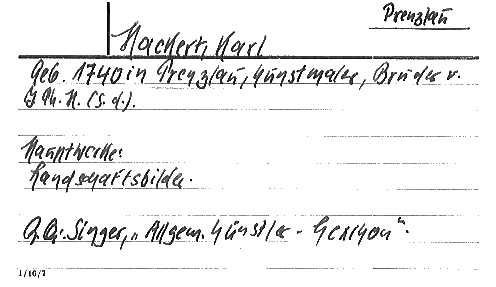 Prenzlau
Hackert, Karl
Geb. 1740 in Prenzlau, Kunstmaler, Bruder v.
J. Ph. H. (s. d.).
Hauptwerke:
Landschaftsbilder.
Q.Q.: Singer, „Allgem. Künstler-Lexikon".
1/10/7